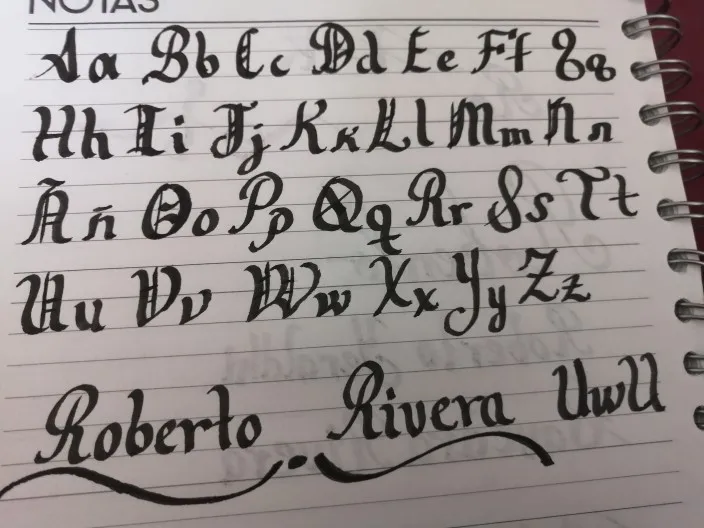 NOTAS
Aa Bb Cc Dd Ee Ff Gg
Hh Ii Jj Kk Ll Mm Nn
Ññ Oo Pp Qq Rr Ss Tt
Uu Vv Ww Xx Yy Zz
Roberto Rivera UwU